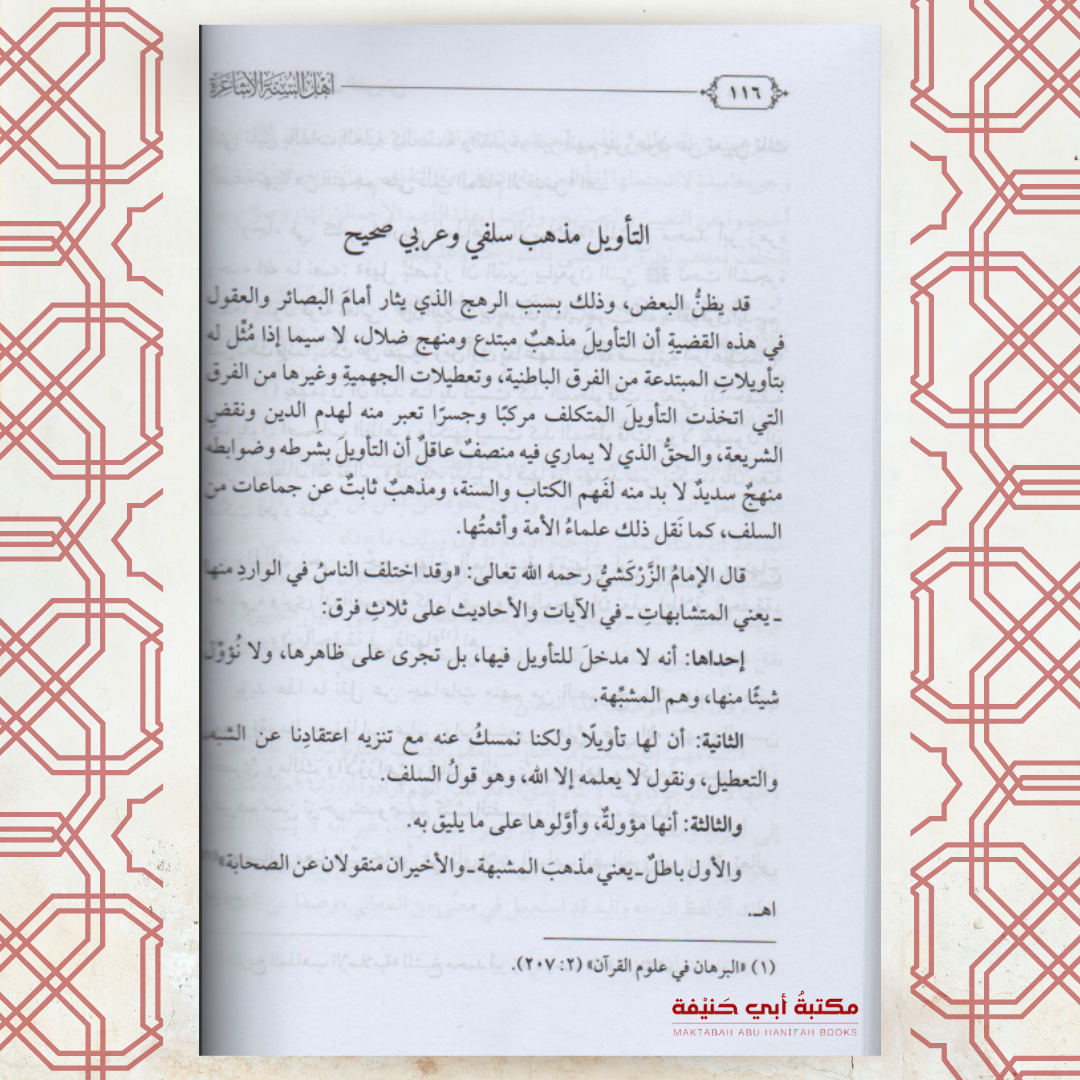 أهل السنة الأشاعرة
١١٦
التأويل مذهب سلفي وعربي صحيح
قد يظنُّ البعض، وذلك بسبب الرهج الذي يثار أمامَ البصائر والعقول
في هذه القضيةِ أن التأويلَ مذهبٌ مبتدع ومنهج ضلال، لا سيما إذا مُثِّل له
بتأويلاتِ المبتدعة من الفرق الباطنية، وتعطيلات الجهميةِ وغيرها من الفرق
التي اتخذت التأويلَ المتكلف مركبًا وجسرًا تعبر منه لهدمِ الدين ونقضِ
الشريعة، والحقُّ الذي لا يماري فيه منصفٌ عاقلٌ أن التأويلَ بشرطه وضوابطه
منهجٌ سديدٌ لا بد منه لفَهم الكتاب والسنة، ومذهبٌ ثابتٌ عن جماعات من
السلف، كما نَقل ذلك علماءُ الأمة وأئمتُها.
قال الإمامُ الزَّرْكشيُّ رحمه الله تعالى: «وقد اختلف الناسُ في الواردِ منها
ـ يعني المتشابهاتِ ـ في الآيات والأحاديث على ثلاثِ فرق:
إحداها: أنه لا مدخلَ للتأويل فيها، بل تجرى على ظاهرها، ولا نُؤوِّل
شيئًا منها، وهم المشبِّهة.
الثانية: أن لها تأويلًا ولكنا نمسكُ عنه مع تنزيه اعتقادِنا عن الشبه
والتعطيل، ونقول لا يعلمه إلا الله، وهو قولُ السلف.
والثالثة: أنها مؤولةٌ، وأوَّلوها على ما يليق به.
والأول باطلٌ ـ يعني مذهبَ المشبهة ـ والأخيران منقولان عن الصحابة»
اهـ.
(١) «البرهان في علوم القرآن» (٢: ٢٠٧).
مكتبةُ أبي حَنيْفة
MAKTABAH ABU HANIFAH BOOKS